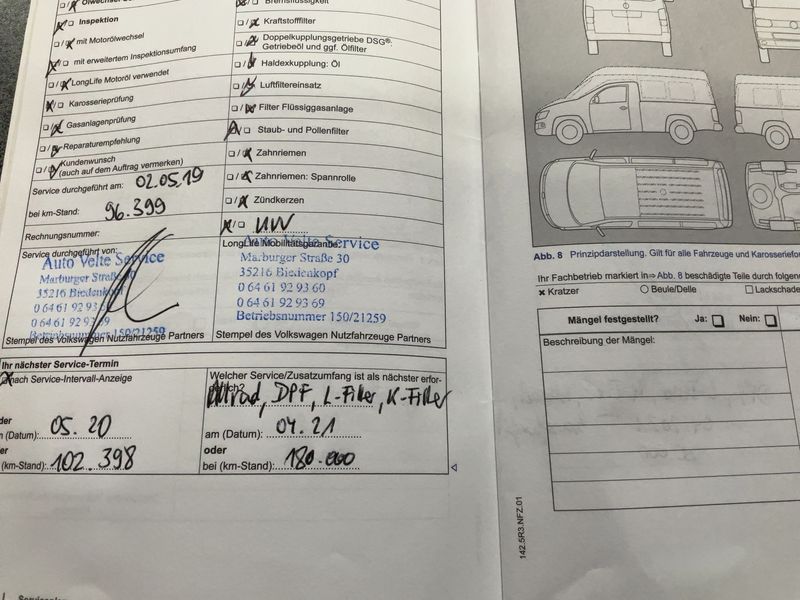 Ölwechsel
Inspektion
mit Motorölwechsel
mit erweitertem Inspektionsumfang
LongLife Motoröl verwendet
Karosserieprüfung
Gasanlagenprüfung
Reparaturempfehlung
Kundenwunsch
(auch auf dem Auftrag vermerken)
Service durchgeführt am: 02.05.19
bei km-Stand: 96.399
Rechnungsnummer:
Service durchgeführt von:
Auto Velte Service
Marburger Straße 30
35216 Biedenkopf
0 64 61 92 93
0 64 61 92 93
Betriebsnummer 150/21259
Stempel des Volkswagen Nutzfahrzeuge Partners
Bremsflüssigkeit
Kraftstofffilter
Doppelkupplungsgetriebe DSG®:
Getriebeöl und ggf. Ölfilter
Haldexkupplung: Öl
Luftfiltereinsatz
Filter Flüssiggasanlage
Staub- und Pollenfilter
Zahnriemen
Zahnriemen: Spannrolle
Zündkerzen
LongLife Mobilitätsgarantie:
Auto Velte Service
Marburger Straße 30
35216 Biedenkopf
0 64 61 92 93 60
0 64 61 92 93 69
Betriebsnummer 150/21259
Stempel des Volkswagen Nutzfahrzeuge Partners
Ihr nächster Service-Termin
nach Service-Intervall-Anzeige
(Datum): 05.20
(km-Stand): 102.398
Welcher Service/Zusatzumfang ist als nächster erfor-
derlich?
Allrad, DPF, L-Filter, K-Filter
am (Datum): 04.21
oder
bei (km-Stand): 180.000
Abb. 8 Prinzipdarstellung. Gilt für alle Fahrzeuge und
Ihr Fachbetrieb markiert in ⇒ Abb. 8 beschädigte Teile durch
Kratzer Beule/Delle Lackschade
Mängel festgestellt? Ja: Nein:
Beschreibung der Mängel:
142.5R3.NFZ.01